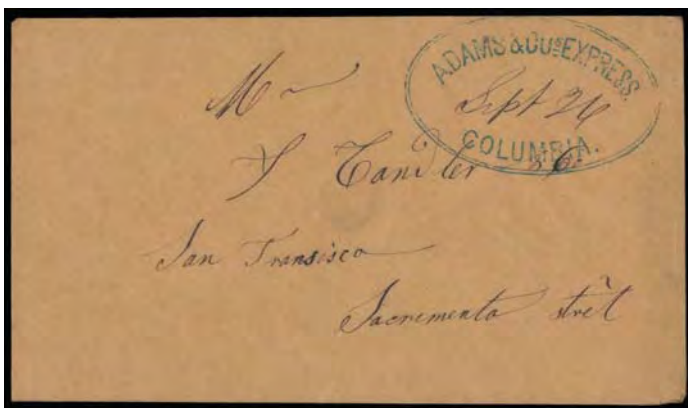 ADAMS & COS EXPRESS.
Sept 26
COLUMBIA.
Mr
S Candler &Co
San Fransisco
Sacremento stret